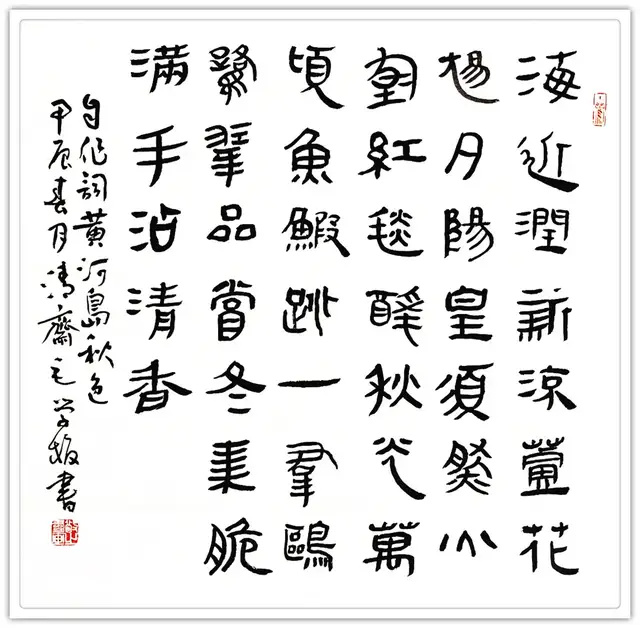 海近潤新涼蘆花
揚月陽皇須燃
望紅毯醉秋光萬
頃魚鰕跳一羣鷗
鷺翬品嘗冬棗脆
滿手沾清香
自作詞黃河島秋色
甲辰春月清齋毛学書